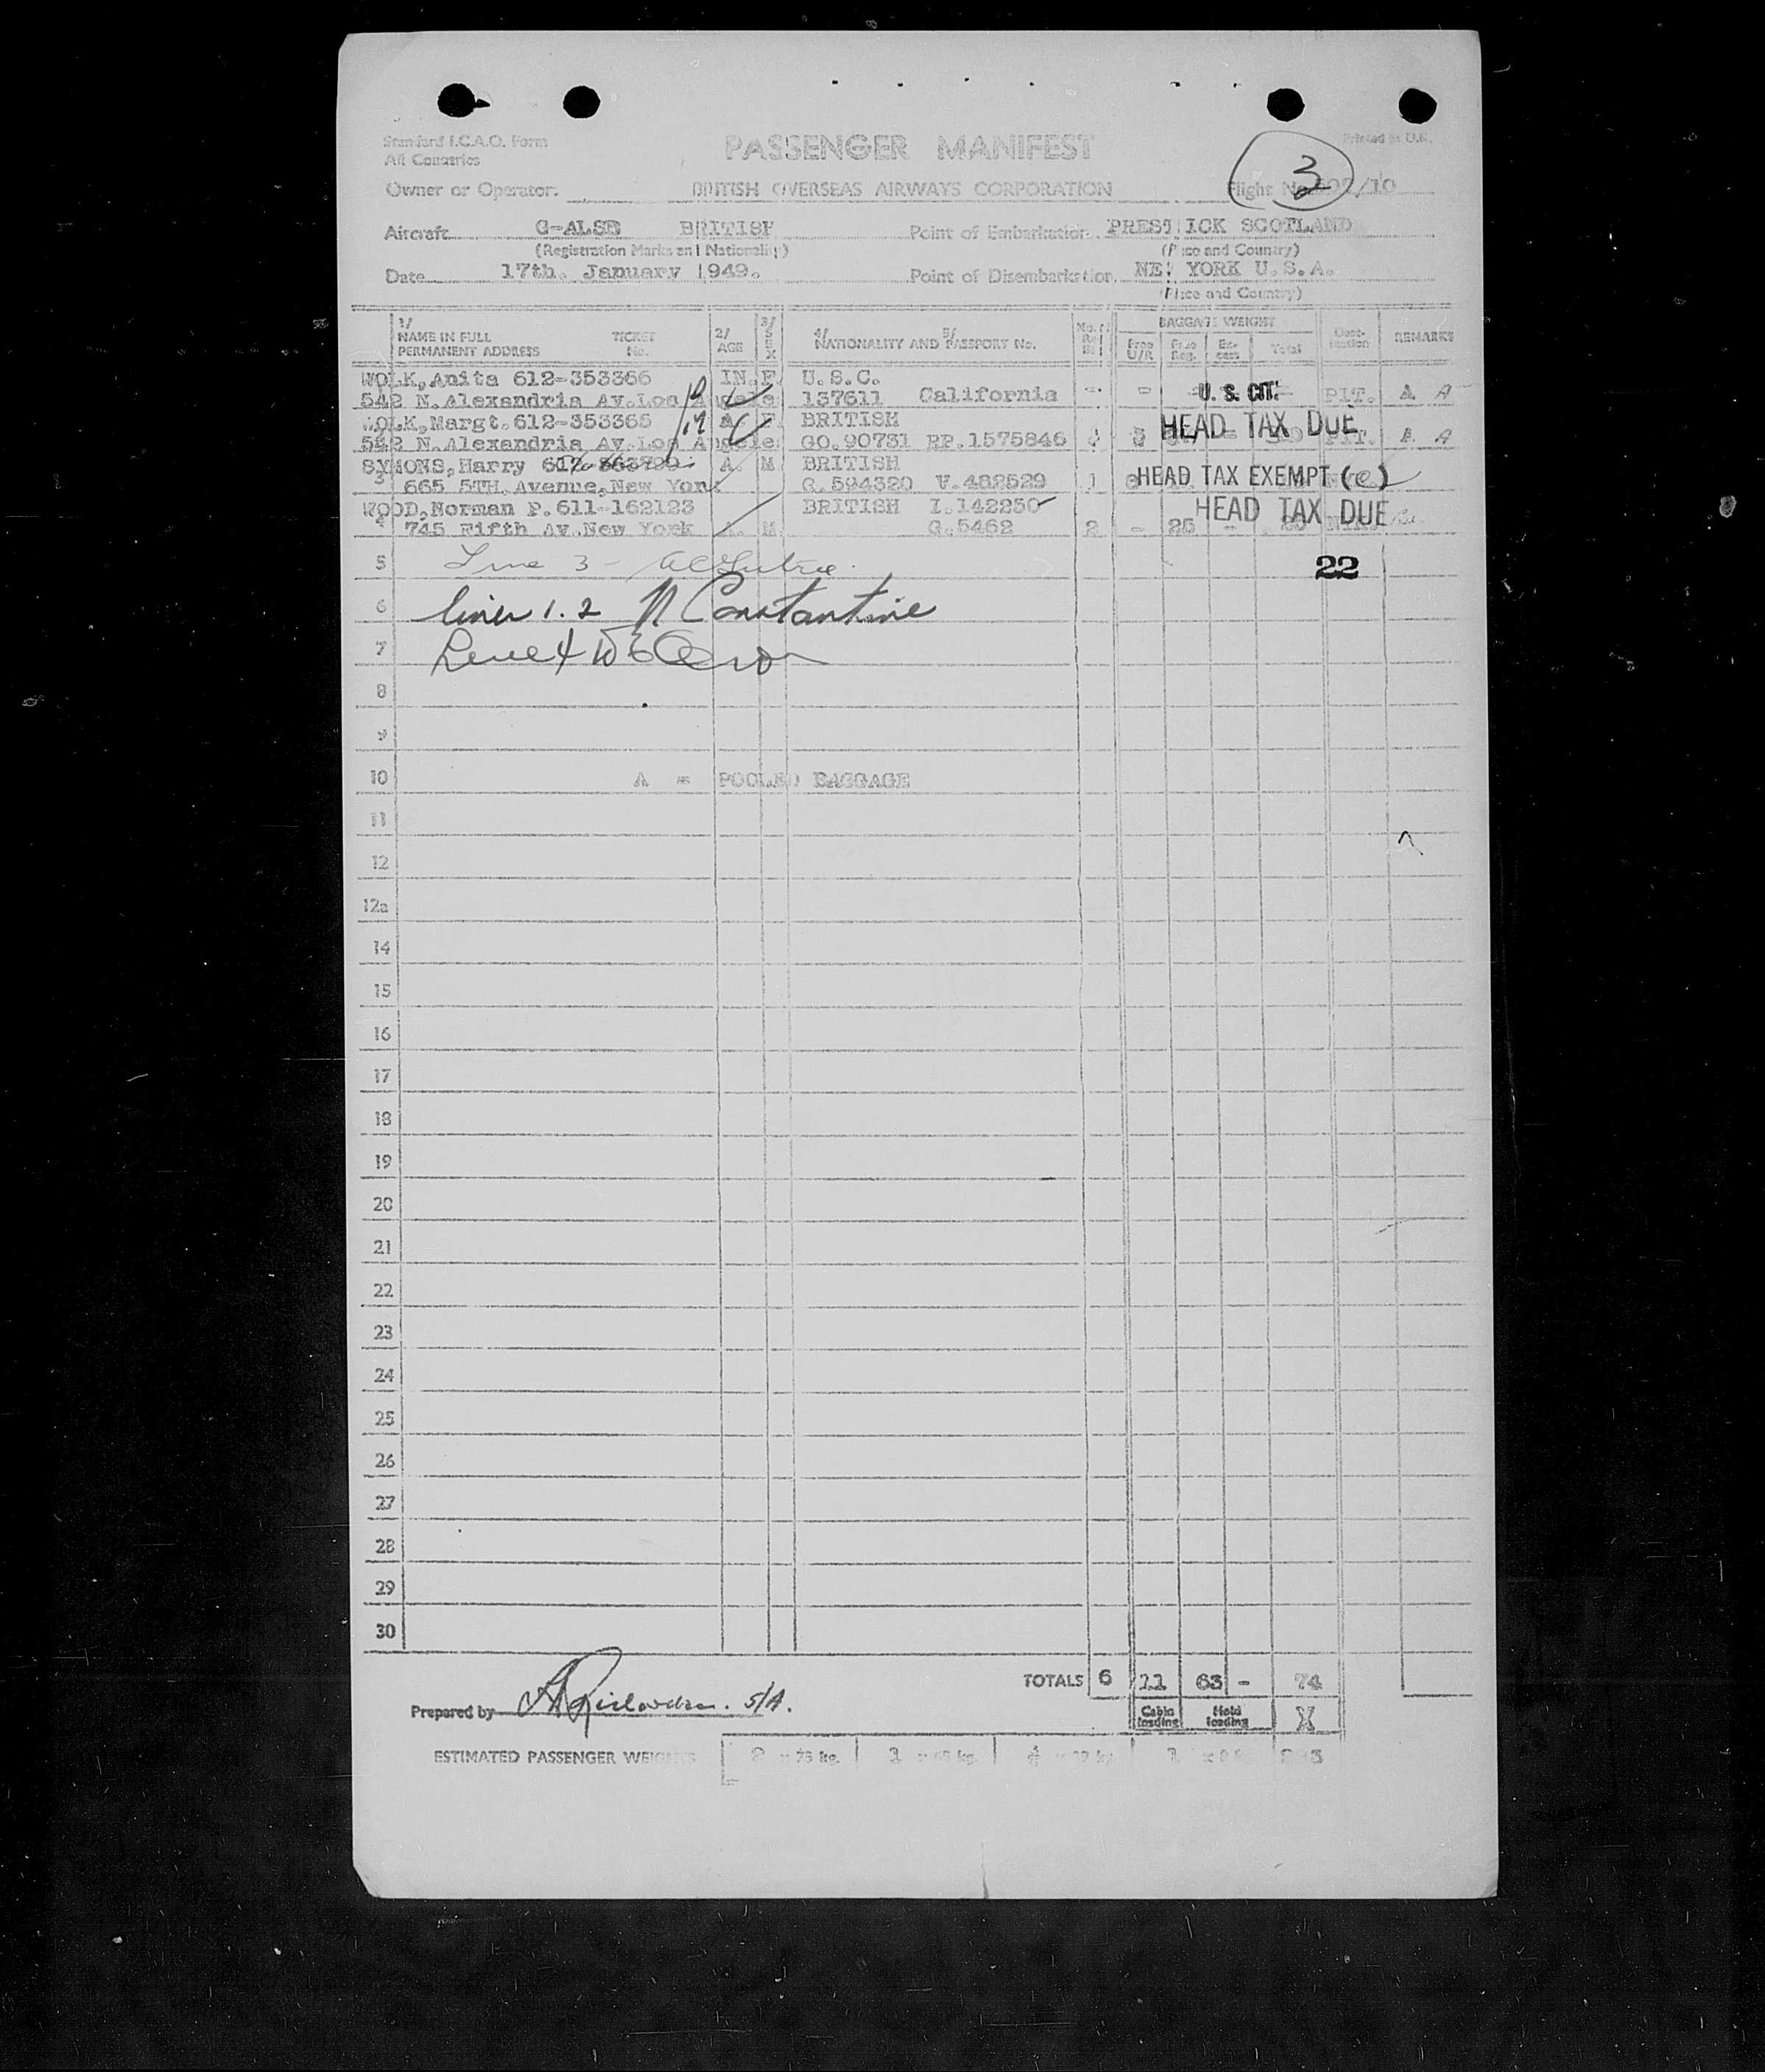 Standard I.C.A.O. Form
All Countries
PASSENGER MANIFEST
Printed in U.K.
3
Owner or Operator BRITISH OVERSEAS AIRWAYS CORPORATION Flight No.
Aircraft G-ALSB BRITISH Point of Embarkation PRESTWICK SCOTLAND
(Registration Marks and Nationality) (Place and Country)
Date 17th. January 1949. Point of Disembarkation NEW YORK U.S.A.
(Place and Country)
1/ NAME IN FULL PERMANENT ADDRESS TICKET No. 2/ AGE 3/ SEX 4/ 5/ NATIONALITY AND PASSPORT No. BAGGAGE WEIGHT Free U/R Free Reg. Excess Total Destination REMARKS
WOLK,Anita 612-353366 IN. F. U.S.C.
542 N.Alexandria Av.Los Angeles 137611 California - - U. S. CIT. PIT. A A
WOLK,Margt.612-353365 A F BRITISH
542 N.Alexandria Av.Los Angeles GO.90731 RP.1575846 HEAD TAX DUE PIT. A
SYMONS,Harry A. M BRITISH
3 665 5TH.Avenue,New York G.594320 V.482529 1 HEAD TAX EXEMPT (e)
WOOD,Norman P.611-162123 BRITISH I.142250
4 745 Fifth Av.New York A. M G.5462 2 - 25 - 25 HEAD TAX DUE
5 Line 3 - 22
6 lines 1.2 N Constantine
7 Line 4
8
9
10 A = POOLED BAGGAGE
11
12
12a
14
15
16
17
18
19
20
21
22
23
24
25
26
27
28
29
30
TOTALS 6 11 63 - 74
Prepared by A Richardson. S/A.
Cabin loading Hold loading X
ESTIMATED PASSENGER WEIGHTS 2 x 75 kg. 1 x 65 kg. 1